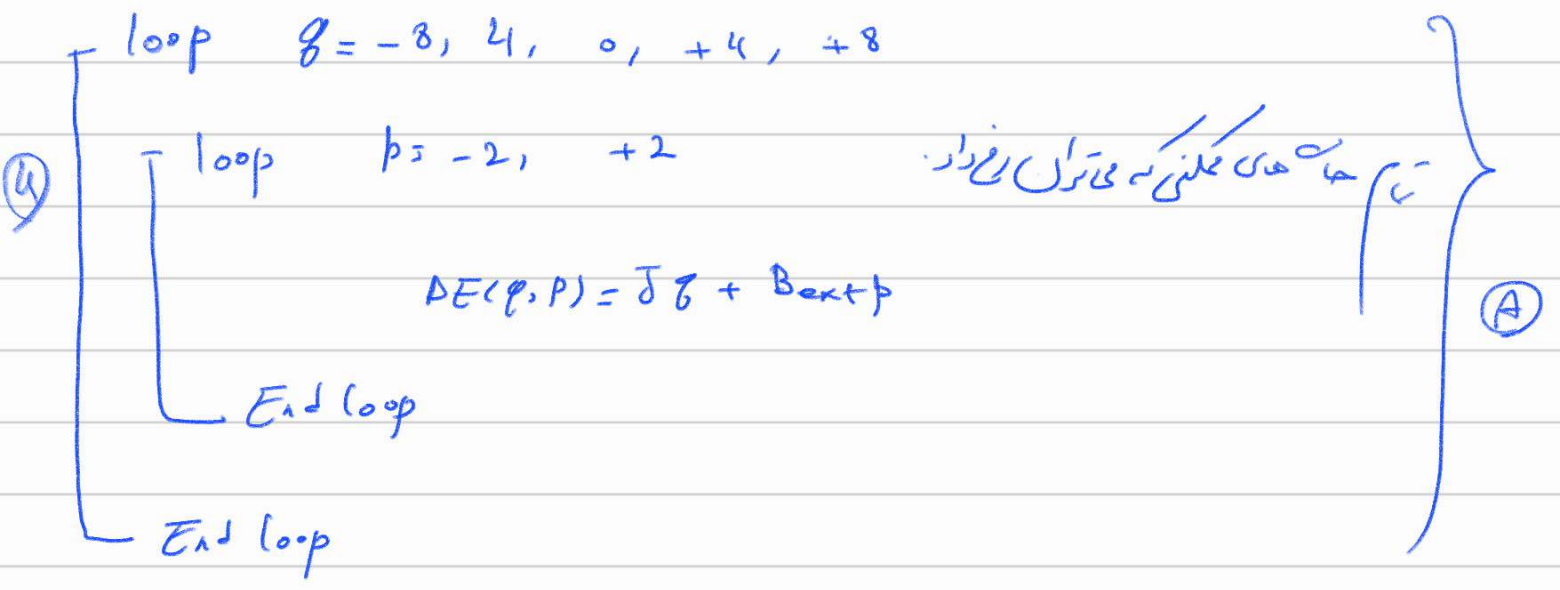 loop q = -8, 4, 0, +4, +8
④ loop p = -2, +2
تمام حالت های ممکنی که می توان رخ داد.
ΔE(q, p) = J q + Bext p
Ⓐ
End loop
End loop